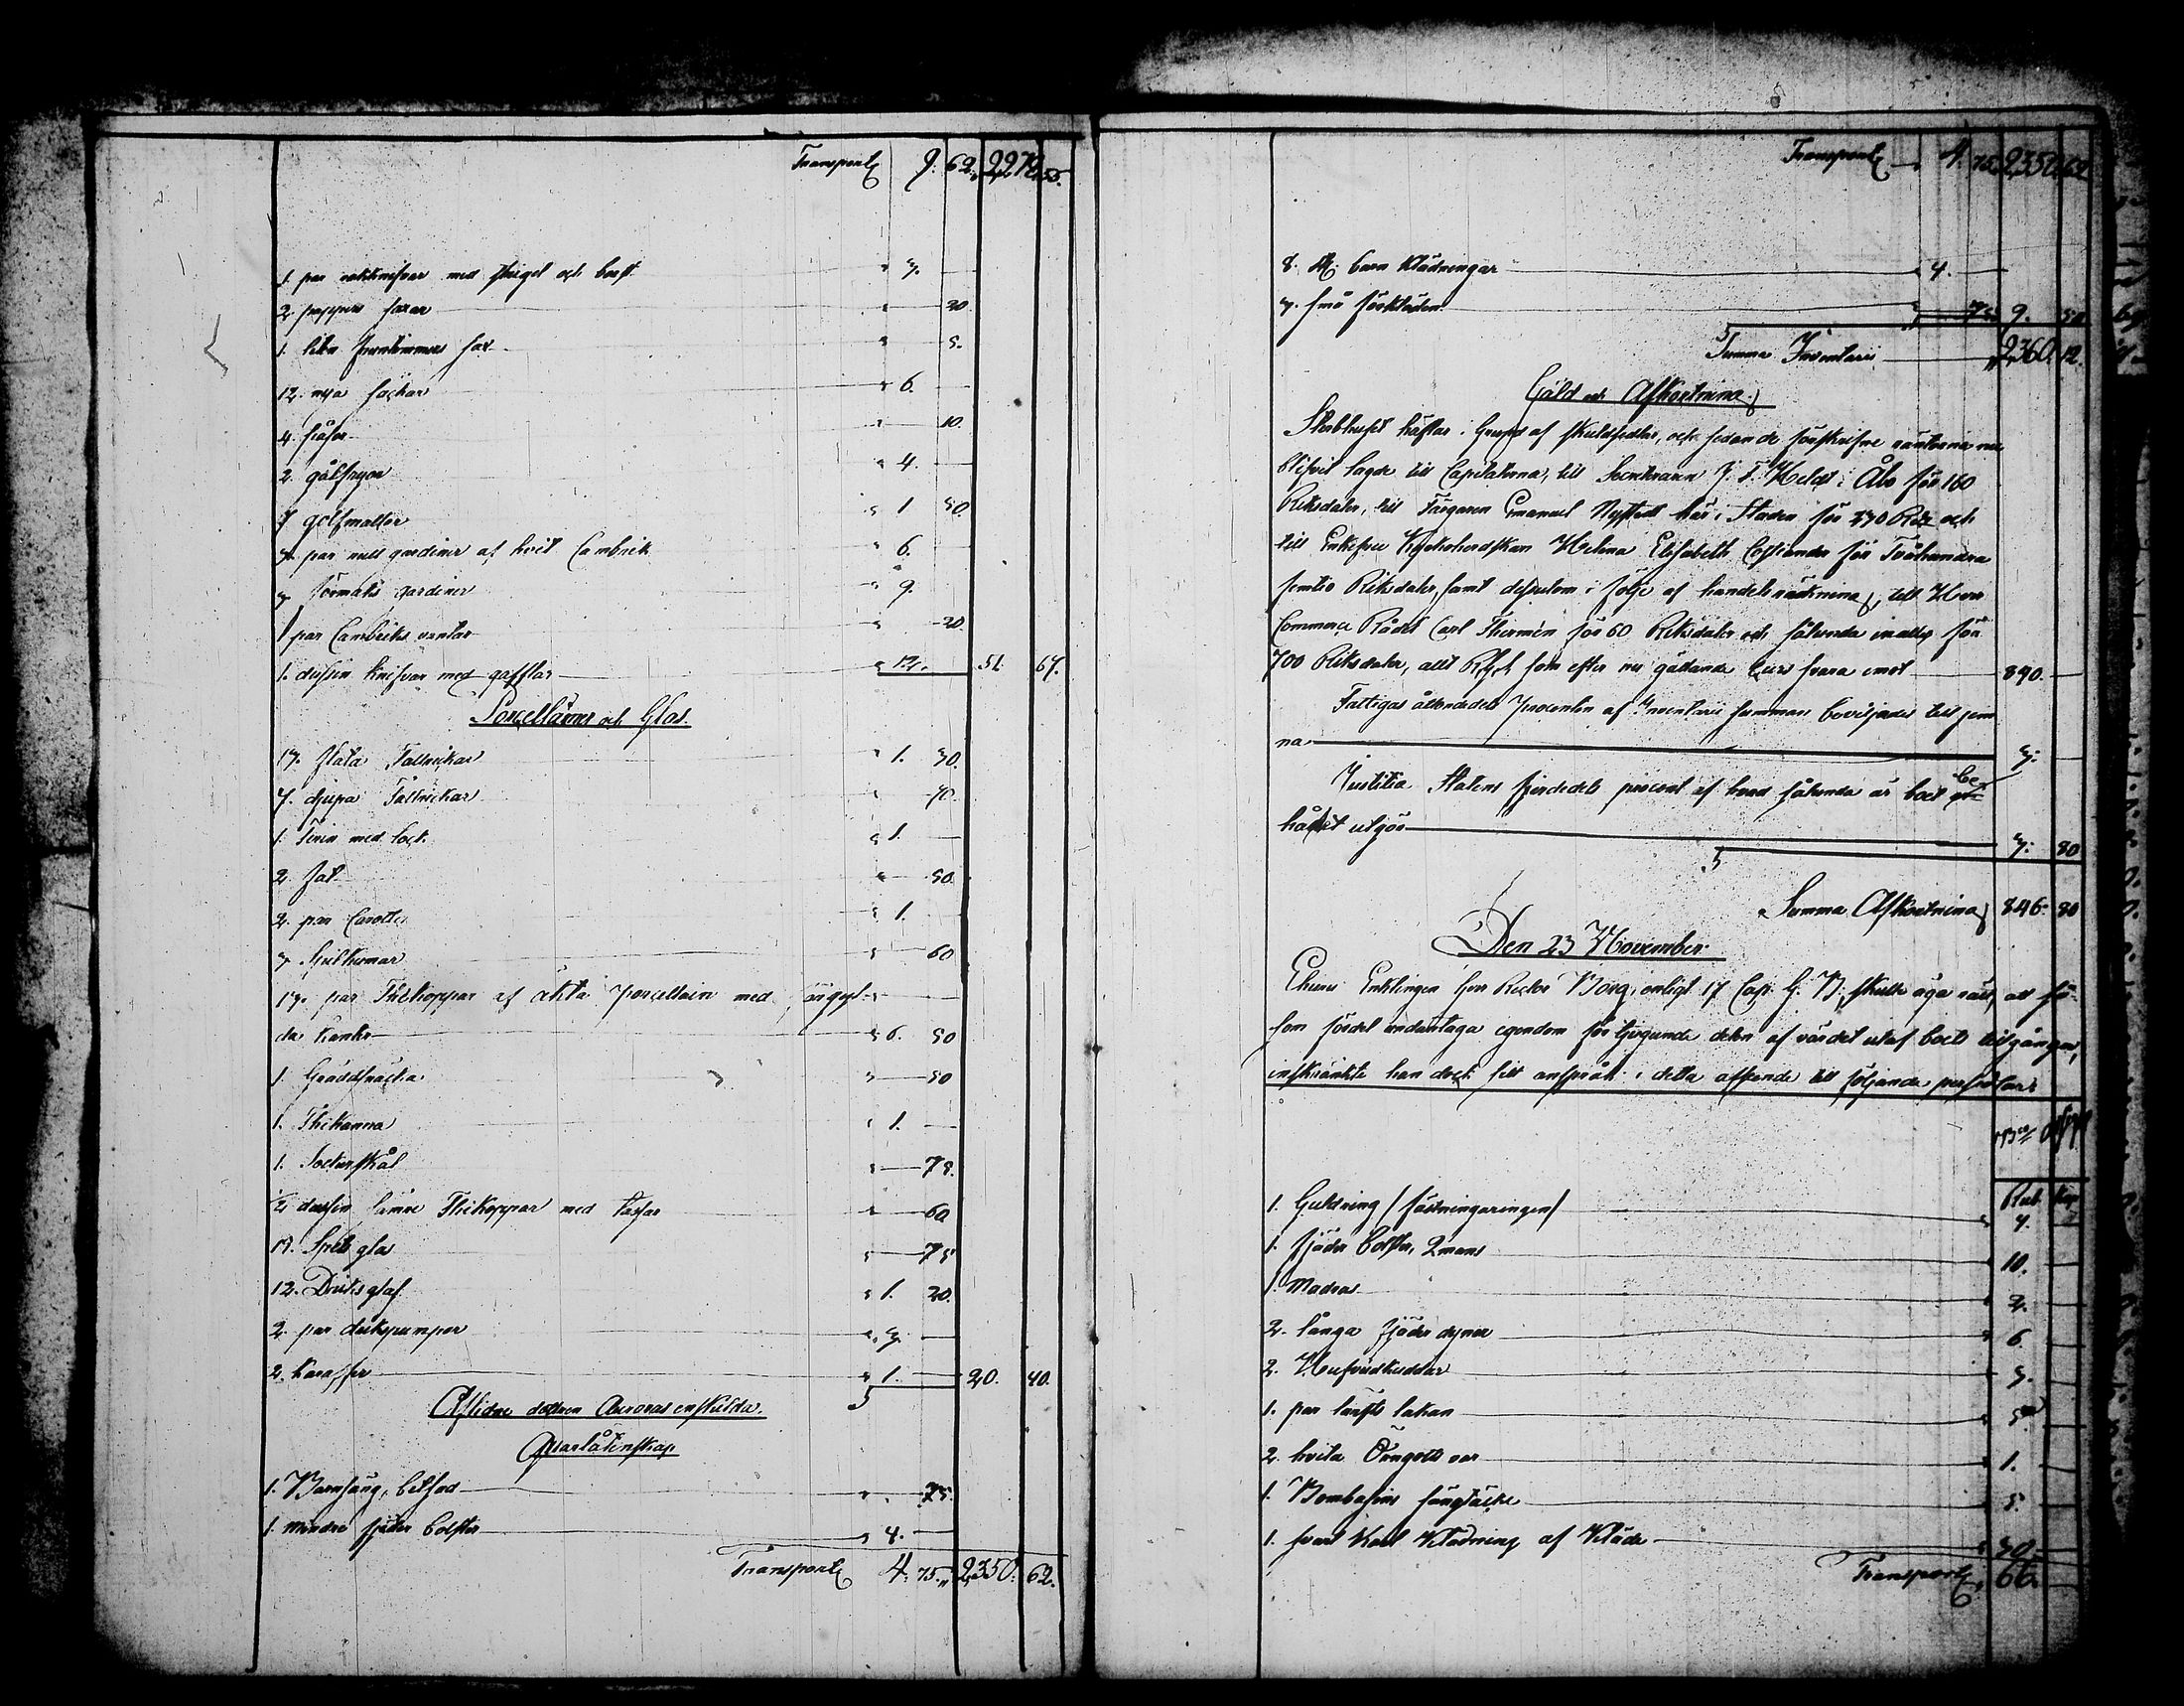 Transport 9. 62. 2,279. 55.
1. par rakknifvar med spegel och borst " 3. —
2. pappers saxar " — 20.
1. liten fruntimmers sax " — 5.
12. nya säckar " 6. —
4. " — 10.
2. " 4. —
7 golfmattor " 1 50.
3. par null gardiner af hvit Cambrik " 6. —
3 gardiner " 9. —
1 par Cambriks vantar " — 20
1. dussin knifvar med gafflar " 12. — 51. 67.
Porcellainer och Glas.
17. flata Tallrickar " 1. 50.
7. djupa Tallrickar " — 70.
1. Terin med lock " 1. —
2. fat " — 50.
2. par Carotter " 1. —
3 Spilkumar " — 60
17. par Thékoppar af äkta porcellain med förgyl-
da kanter " 6. 50
1. Gräddsnäcka " — 50
1. Thekanna " 1. —
1. Sockerskål " — 75.
1/2 dussin sämre Thekoppar med tassar " — 60
19. Spets glas " — 75
12. Dricks glas " 1. 20.
2. par " 3. —
2. karaffer " 1. — 20. 40.
Aflidne dottren Auroras enskilda
Qvarlåtenskap
1. Barnsäng, betsad " — 75.
1. mindre fjäder bolster " 4. —
Transport 4. 75. 2,350. 62.
Transport 4. 75. 2,350. 62
8. st. barn klädningar " 4. —
3. små förkläden " 75. 9. 50
Summa Inventarii 2,360. 12.
Gäld och Afkortning
Sterbhuset häftar i Grund af skuldsedlar, och sedan de förskrifne räntorna nu
blifvit lagde till Capitalerna, till Secreteraren J. F. i Åbo för 160
Riksdaler, till Färgaren Emanuel Nystedt här i Staden för 230 Rdr och
till Enkefru Kyrkoherdskan Helena Elisabeth för Tvåhundra
femtio Riksdaler, samt dessutom i följe af handels räckning, till Herr
Commerce Rådet Carl Thermén för 60 Riksdaler och sålunda inalles för
700 Riksdaler, allt Rgs som efter nu gällande Curs svara emot — 840. —
Fattigas åttondedels Procenten af Inventarii summan beviljades till jem
na — 3. —
Justitiæ Statens fjerdedels procent af hvad sålunda är boet be
hållet utgör — 3. 80
Summa Afkortning 846. 80
Den 23 November.
Ehuru Enklingen herr Rector Borg, enligt 17 Cap. G. B. skulle äga rätt, att så-
som fördel undantaga egendom för tjugunde delen af värdet utaf boets tillgångar,
inskränkte han dock sitt anspråk i detta afseende till följande persedlar:
Bco
Rub. Kop.
1. Guldring /fästningaringen/ 4. —
1. fjäder bolster, 2 mans 10. —
1. Madras 2. —
2. långa fjäder dynor 6. —
2. Hufvudkuddar 3. —
1. par lärfts lakan 5. —
2. hvita Örngotts var 1. —
1. Bombasins sängtäcke 5. —
1. svart Karl Klädning af Kläde 30. —
Transport 66. —